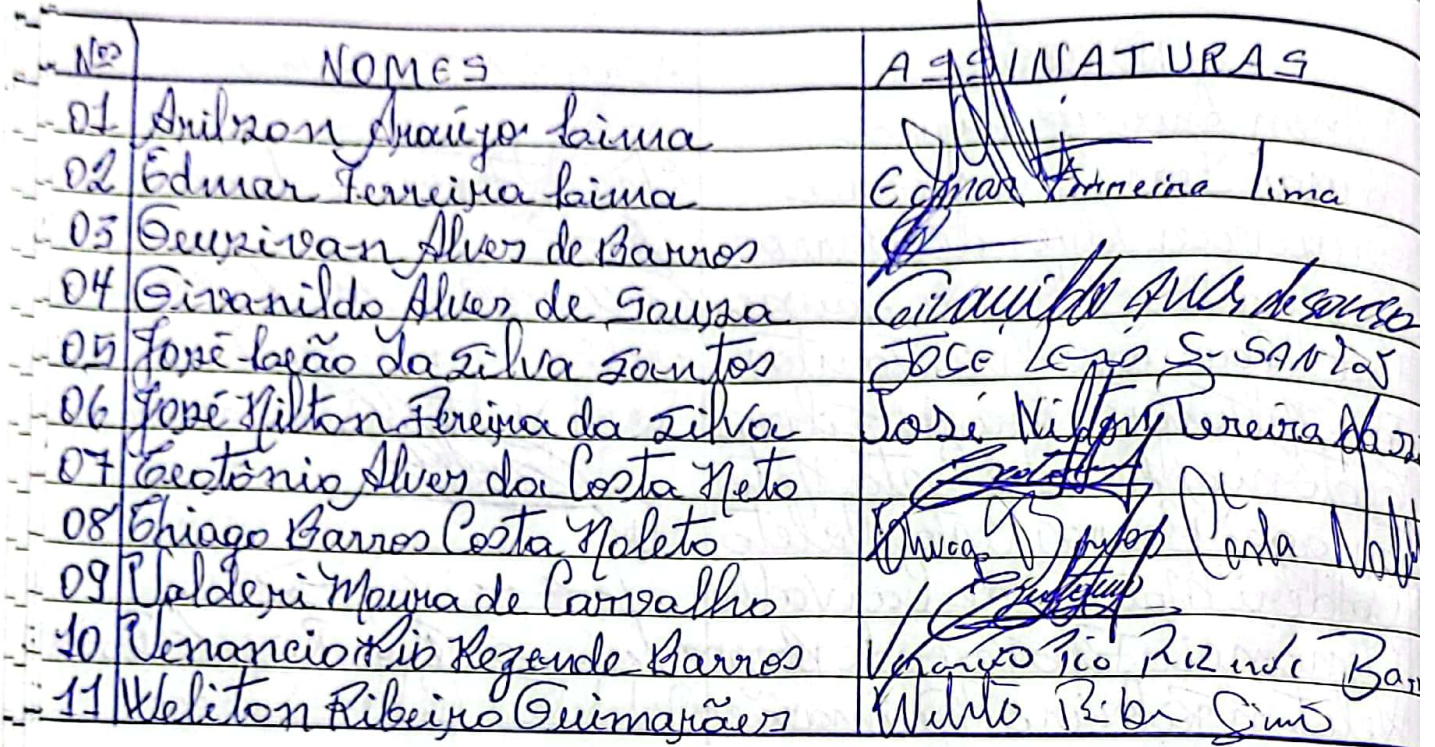 Nºs NOMES ASSINATURAS
01 Arilson Araújo Lima
02 Edmar Ferreira Lima Edmar Ferreira Lima
03 Geurivan Alves de Barros
04 Givanildo Alves de Souza Givanildo Alves de Souza
05 José Leão da Silva Santos JOSÉ LEÃO S. SANTOS
06 José Nilton Pereira da Silva José Nilton Pereira da
07 Teotônio Alves da Costa Neto
08 Thiago Barros Costa Noleto Thiago Barros Costa
09 Valderi Moura de Carvalho
10 Venancio Rio Rezende Barros Venancio Rio Rezende Bar
11 Weliton Ribeiro Guimarães